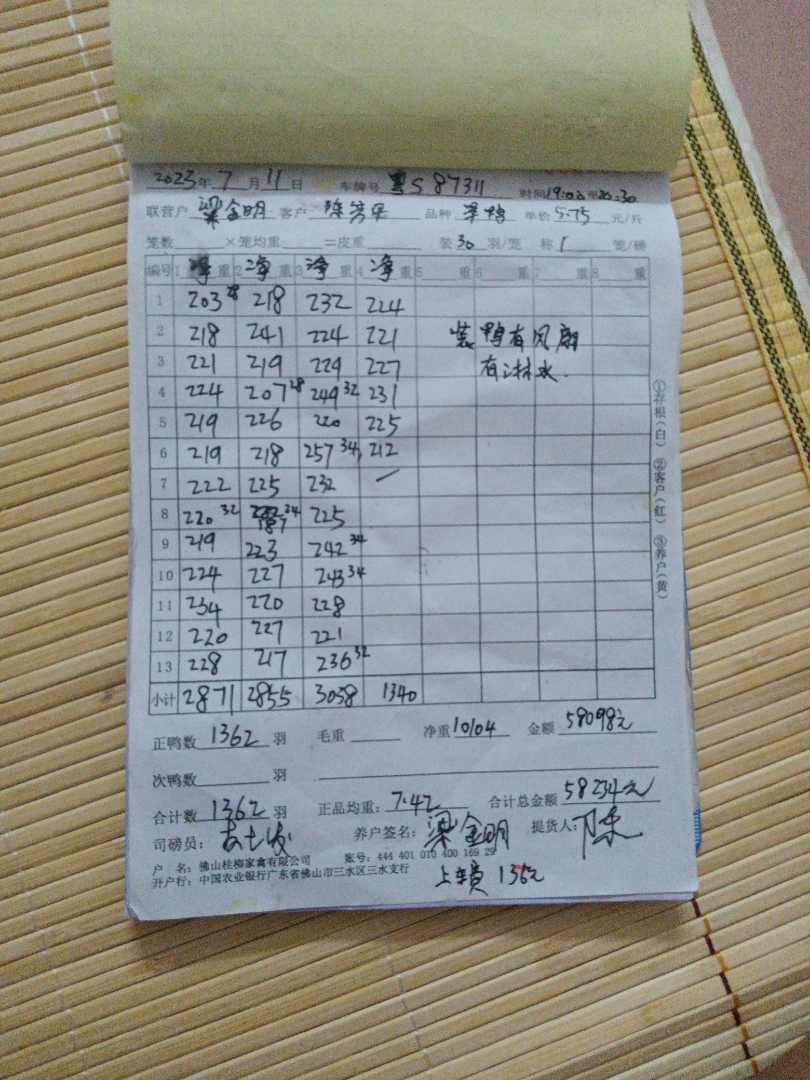 2023年 7 月 11 日 车牌号 粤S 87311 时间19:02至20:30
联营户 梁金明 客户 品种 单价 5.75 元/斤
笼数 ×笼均重 =皮重 装 30 羽/笼 称 1 笼/磅
编号 1 净 重 2 净 重 3 净 重 4 净 重 5 重 6 重 7 重 8 重
1 203 28 218 232 224
2 218 241 224 221 装鸭有风扇
3 221 219 229 227 有淋水.
4 224 207 28 249 32 231
5 219 226 220 225
6 219 218 257 34 212
7 222 225 232
8 220 32 187 24 225
9 219 223 242 34
10 224 227 243 34
11 234 220 228
12 220 227 221
13 228 217 236 32
小计 2871 2855 3038 1340
正鸭数 1362 羽 毛重 净重 10104 金额 58098元
次鸭数 羽
合计数 1362 羽 正品均重: 7.42 合计总金额 58234元
司磅员: 养户签名: 梁金明 提货人: 陈
户 名: 佛山桂柳家禽有限公司 账号: 444 401 010 400 169 29
开户行: 中国农业银行广东省佛山市三水区三水支行
上车费 136元
①存根(白) ②客户(红) ③养户(黄)